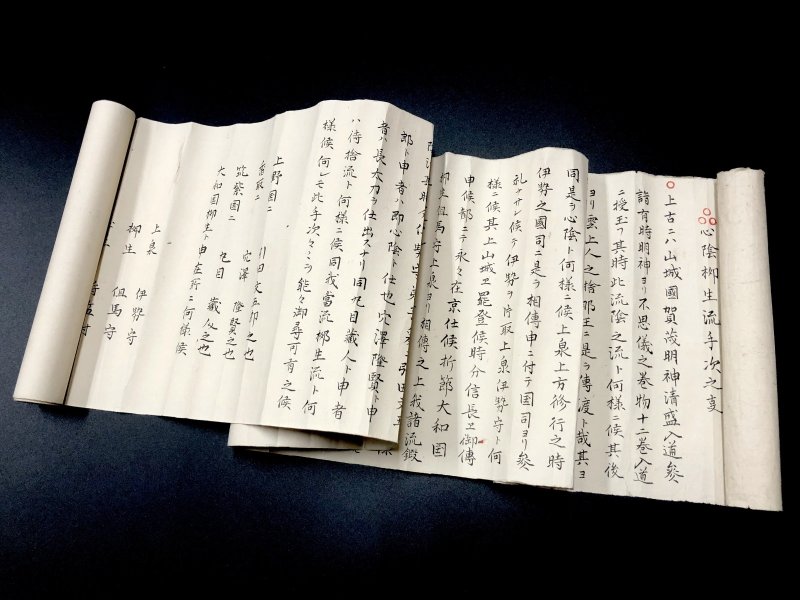 心陰柳生流手次之叓
上古ニハ山城國賀茂明神清盛入道参
詣有時明神ヨリ不思儀之巻物十二巻入道
ニ授玉フ其時此流陰之流ト何様ニ候其後
ヨリ雲上人之捨那王ニ是ラ傳渡ト哉其ヨ
同是ラ心陰ト何様ニ候上泉上方修行之時
伊勢之國司ニ是ラ相傳申ニ付テ国司ヨリ參
礼ナサレ候テ伊勢ヲ片取上泉伊勢守ト何
様ニ候其上山城ヱ罷登候時分信長ヱ御傳
申候都ニテ永々在京仕候折節大和国
柳生但馬守上泉ヨリ相傳之上我諸流鍛
郎ト申者ハ即心陰ト仕也穴澤隆賢ト申
者ハ長太刀ヲ仕出スナリ同丸目蔵人ト申者
ハ侍捨流ト何様ニ候同我當流柳生流ト何
様候何レモ此手次々ミラ能々御尋可有之候
上野国ニ
香取ニ 引田文五郎之也
筑紫国ニ 穴澤 隆賢之也
丸目 蔵人之也
大和国柳生ト申在所ニ何様候
上泉 伊勢守
柳生 但馬守